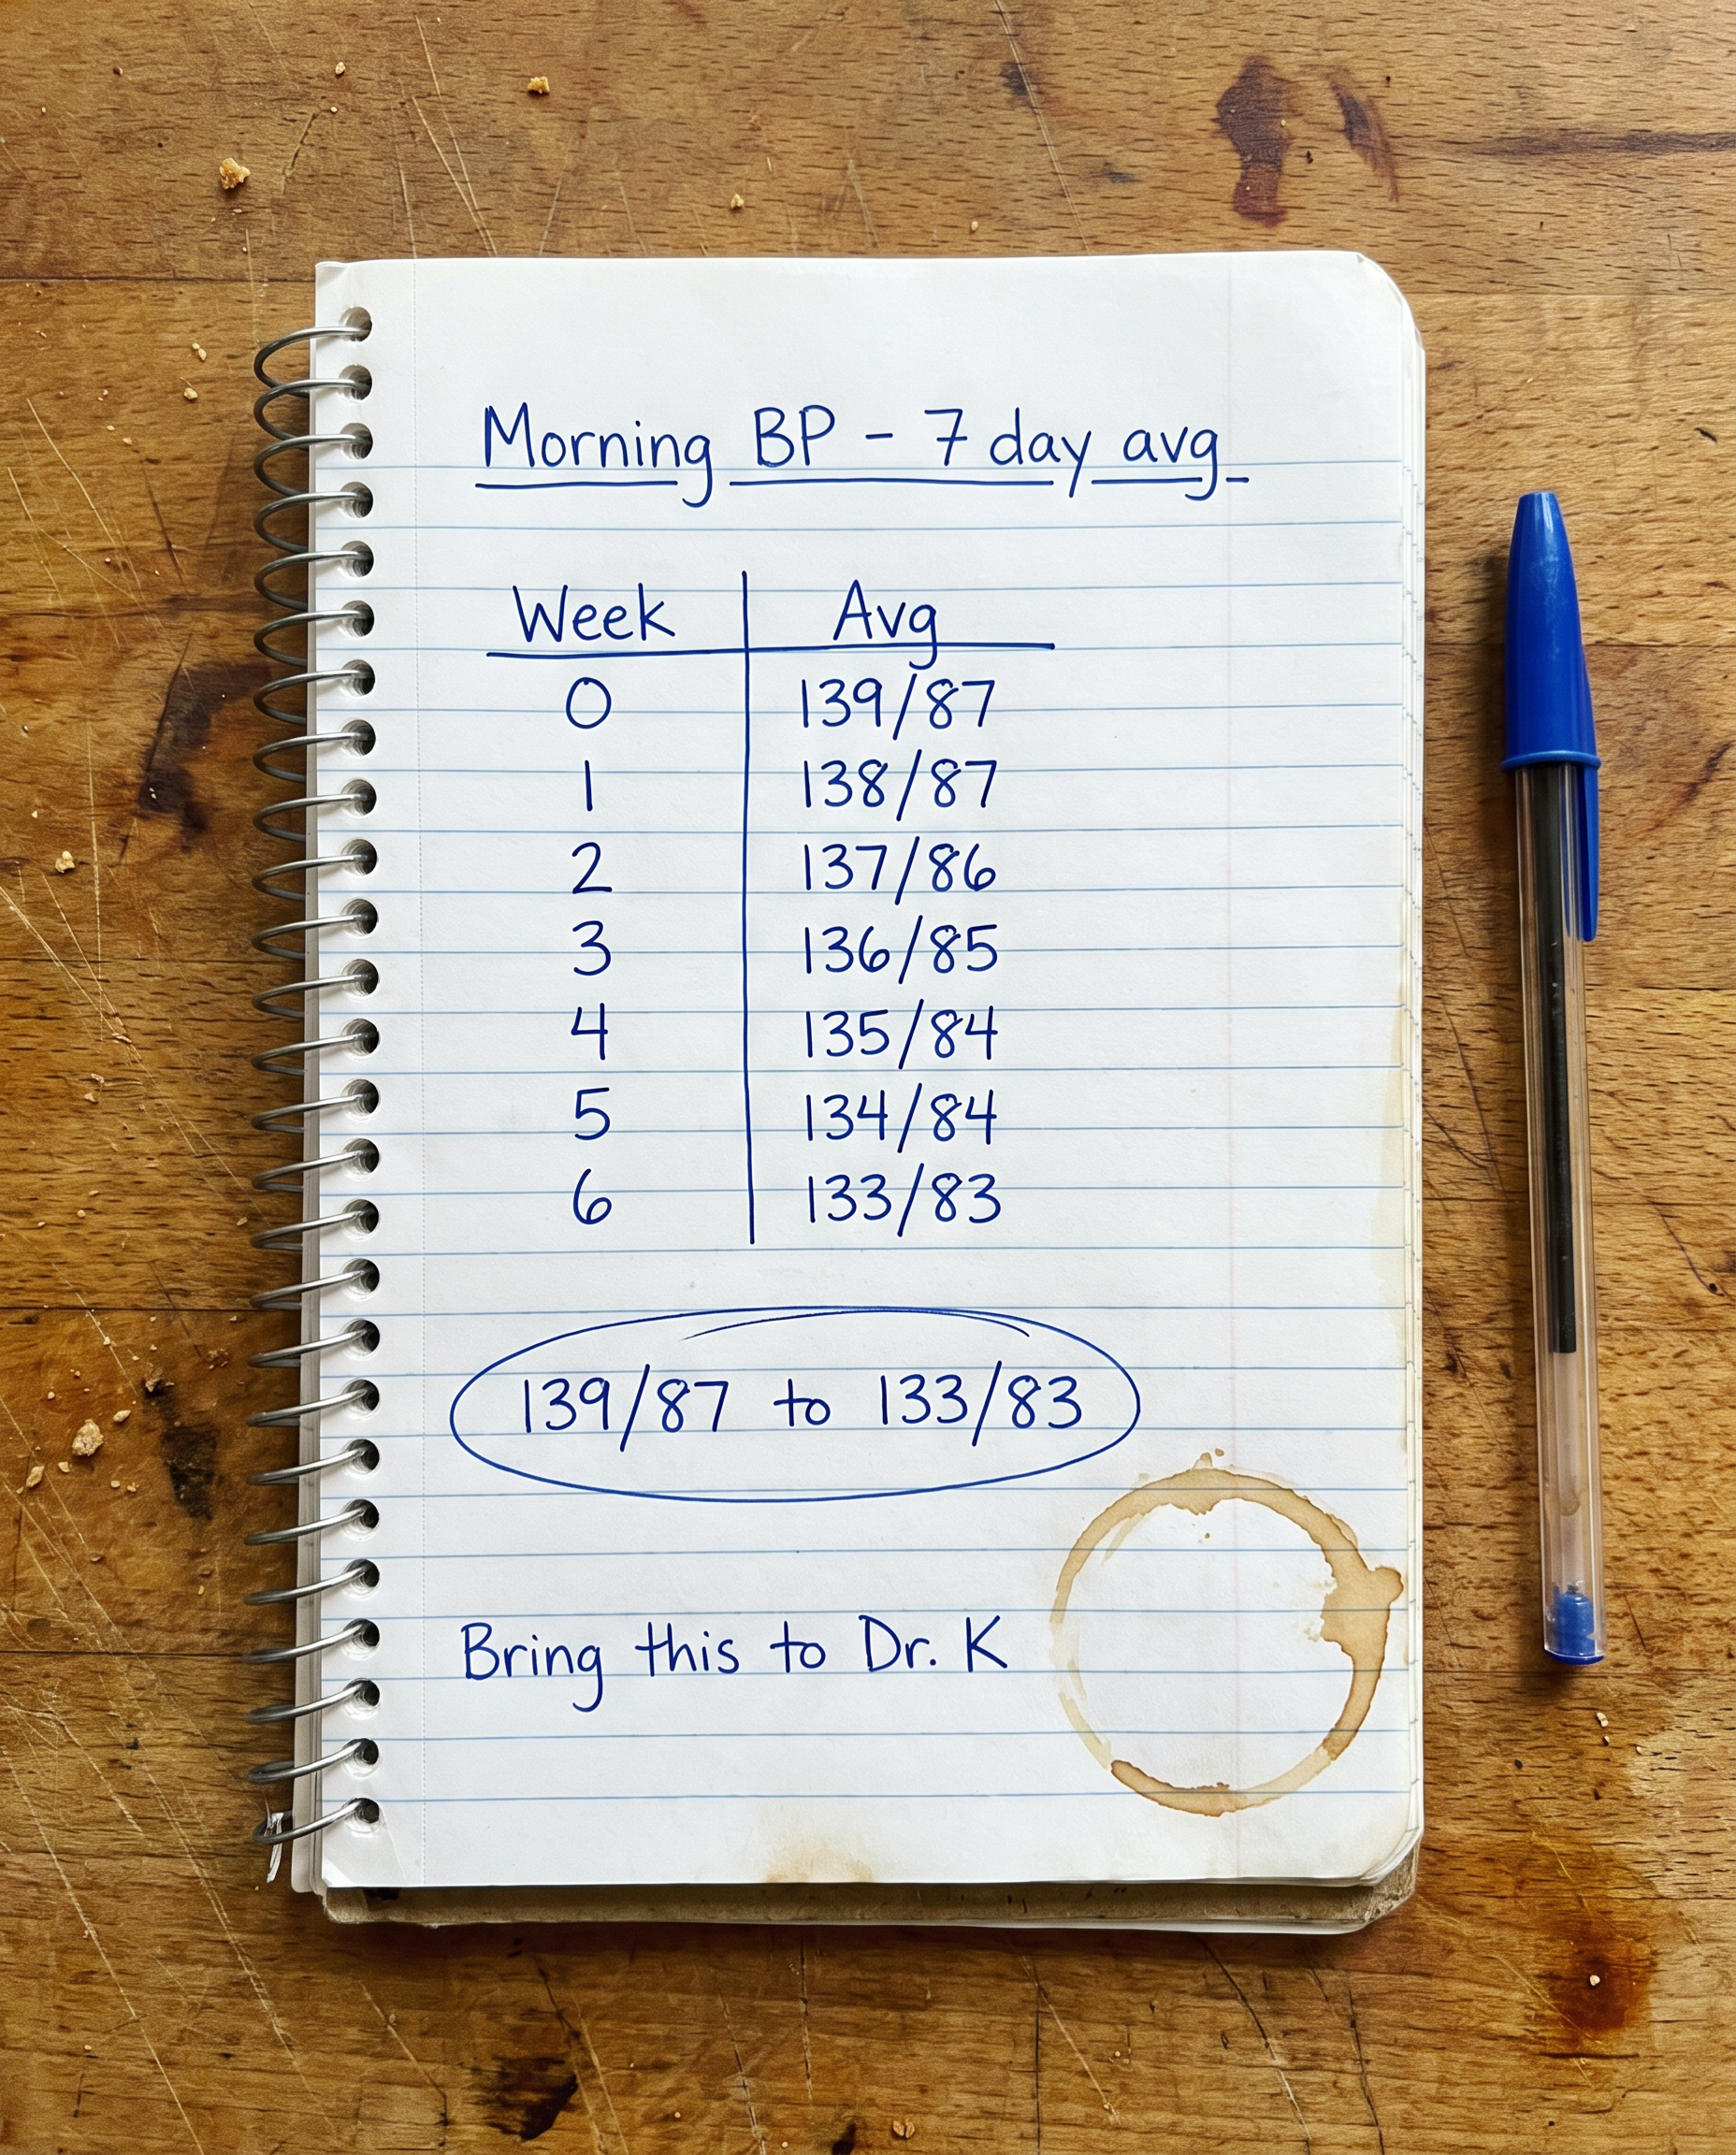 Morning BP - 7 day avg
Week Avg
0 139/87
1 138/87
2 137/86
3 136/85
4 135/84
5 134/84
6 133/83
139/87 to 133/83
Bring this to Dr. K